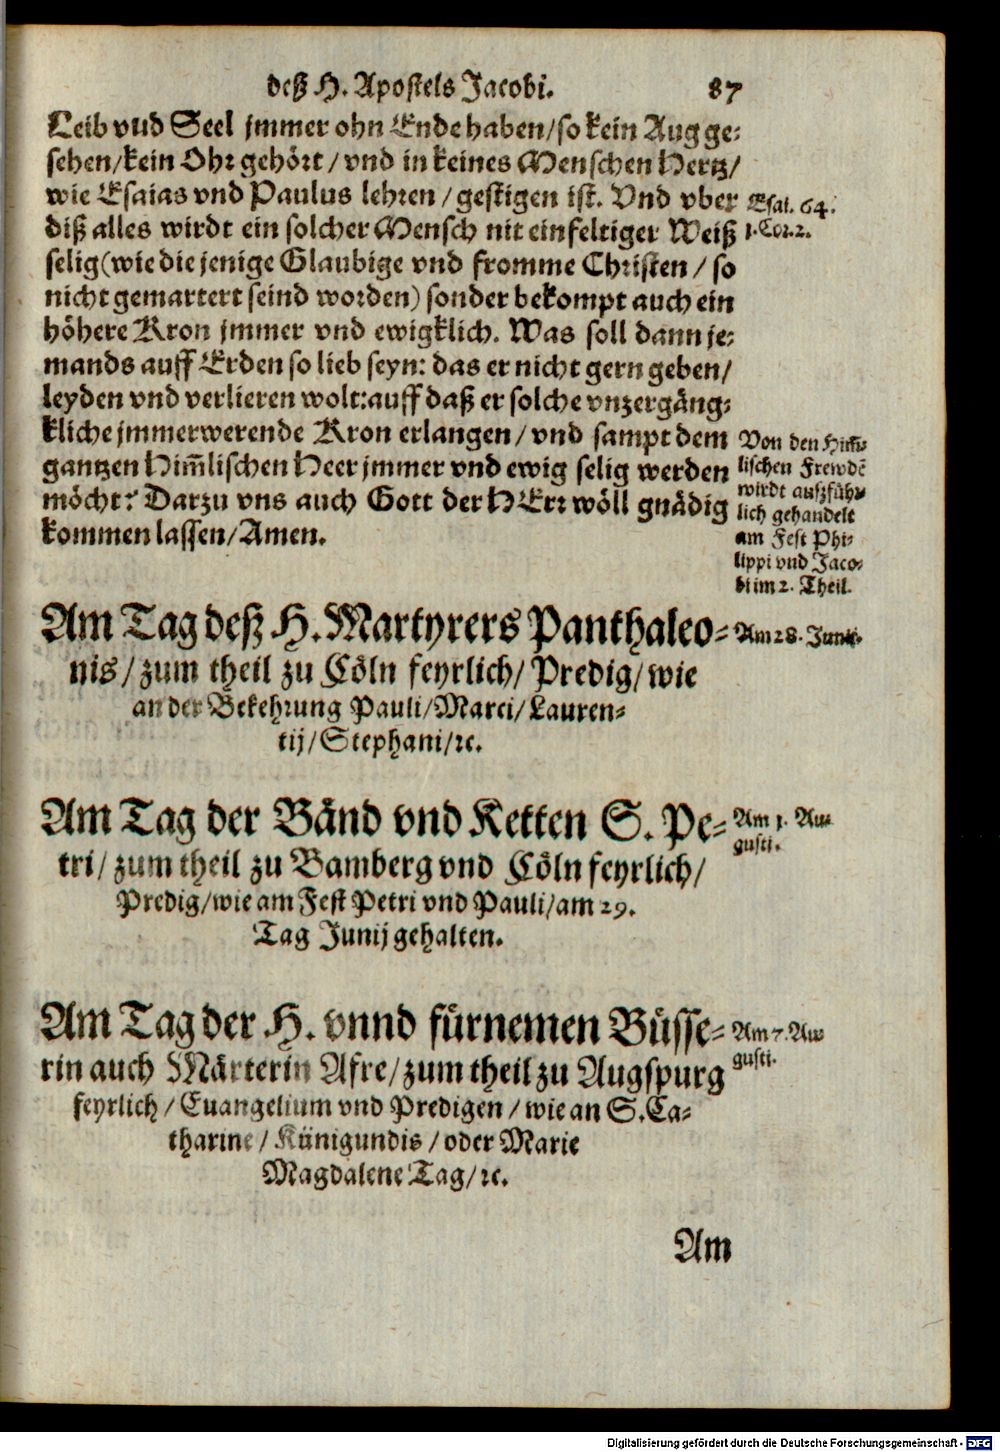 deß H. Apostels Jacobi.
87
Leib vnd Seel jmmer ohn Ende haben/so kein Aug ge-
sehen/kein Ohr gehört/vnd in keines Menschen Hertz/
wie Esaias vnd Paulus lehren/gestigen ist. Vnd vber
diß alles wirdt ein solcher Mensch nit einfeltiger Weiß
selig (wie die jenige Glaubige vnd fromme Christen/so
nicht gemartert seind worden) sonder bekompt auch ein
höhere Kron jmmer vnd ewigklich. Was soll dann je-
mands auff Erden so lieb seyn: das er nicht gern geben/
leyden vnd verlieren wolt: auff daß er solche vnzergäng-
kliche jmmerwerende Kron erlangen/vnd sampt dem
gantzen Him̃lischen Heer jmmer vnd ewig selig werden
möcht? Darzu vns auch Gott der HErr wöll gnädig
kommen lassen/Amen.
Esai. 64.
1. Cor. 2.
Von den Him̃-
lischen Frewdẽ
wirdt außführ-
lich gehandelt
am Fest Phi-
lippi vnd Jaco-
bi im 2. Theil.
Am Tag deß H. Martyrers Panthaleo-
nis/zum theil zu Cöln feyrlich/Predig/wie
an der Bekehrung Pauli/Marci/Lauren-
tij/Stephani/ꝛc.
Am 28. Junij.
Am Tag der Bänd vnd Ketten S. Pe-
tri/zum theil zu Bamberg vnd Cöln feyrlich/
Predig/wie am Fest Petri vnd Pauli/am 29.
Tag Junij gehalten.
Am 1. Au-
gusti.
Am Tag der H. vnnd fürnemen Büsse-
rin auch Märterin Afre/zum theil zu Augspurg
feyrlich/Euangelium vnd Predigen/wie an S. Ca-
tharine/Künigundis/oder Marie
Magdalene Tag/ꝛc.
Am 7. Au-
gusti.
Am
Digitalisierung gefördert durch die Deutsche Forschungsgemeinschaft - DFG